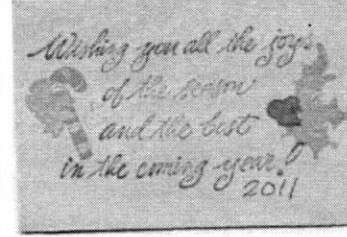 Wishing you all the joys
of the season
and the best
in the coming year!
2011